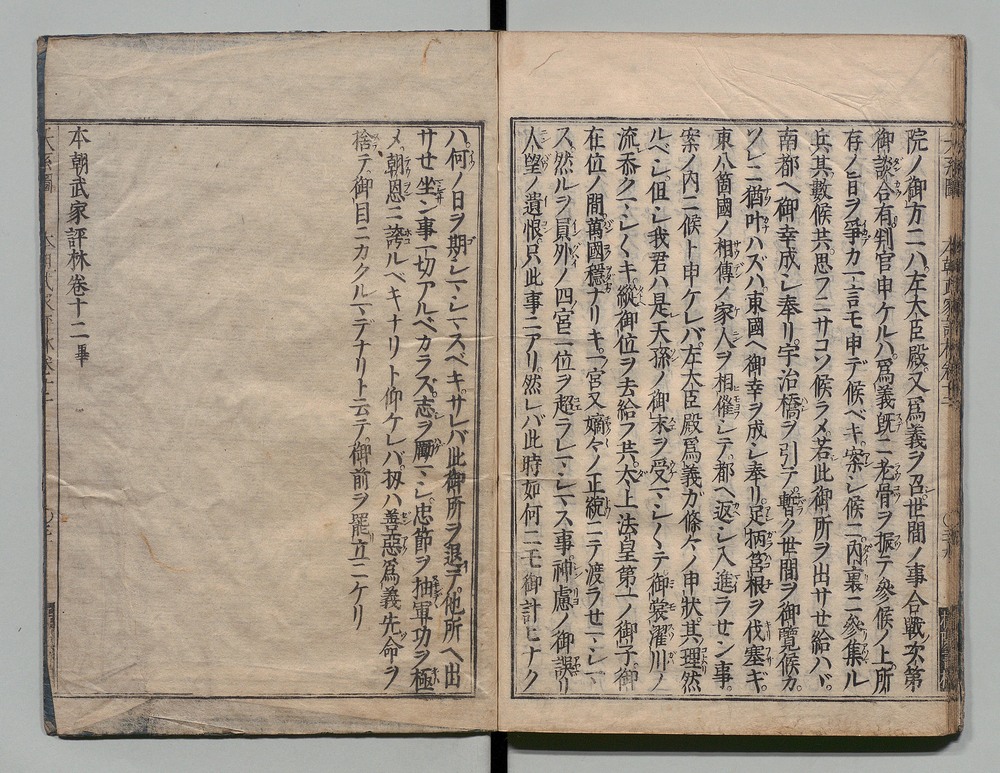 院ノ御方ニハ左大臣殿又爲義ヲ召世間ノ事合戰次第
御談合有判官申ケルハ爲義既ニ老骨ヲ振テ參候ノ上所
存ノ旨ヲ爭カ一言モ申デ候ベキ案シ候ニ内裏ニ參集ル
兵其數候共思フニサコソ候ラメ若此御所ヲ出サせ給ハバ
南都ヘ御幸成シ奉リ宇治橋ヲ引テ暫ク世間ヲ御覽候カ
ソレニ猶叶ハズハ東國ヘ御幸ヲ成シ奉リ足柄筥根ヲ伐塞ギ
東八箇國ノ相傳ノ家人ヲ相催シテ都ヘ返シ入進ラせン事
案ノ内ニ候ト申ケレバ左大臣殿爲義ガ條々ノ申狀其理然
ルベシ但シ我君ハ是天孫ノ御末ヲ受マシ〱テ御裳濯川ノ
流忝クマシ〱キ縱御位ヲ去給フ共太上法皇第一ノ御子御
在位ノ間萬國穩ナリキ一宮又嫡々ノ正統ニテ渡ラせマシマ
ス然ルヲ員外ノ四宮ニ位ヲ超ラレマシマス事神慮ノ御誤リ
人望ノ遺恨只此事ニアリ然レバ此時如何ニモ御計ヒナク
ハ何ノ日ヲ期シマシマスベキサレバ此御所ヲ退テ他所ヘ出
サせ坐ン事一切アルベカラズ志ヲ勵マシ忠節ヲ抽軍功ヲ極
メ朝恩ニ誇ルベキナリト仰ケレバ扨ハ善惡爲義先命ヲ
捨テ御目ニカクルマデナリト云テ御前ヲ罷立ニケリ
本朝武家評林卷十二畢